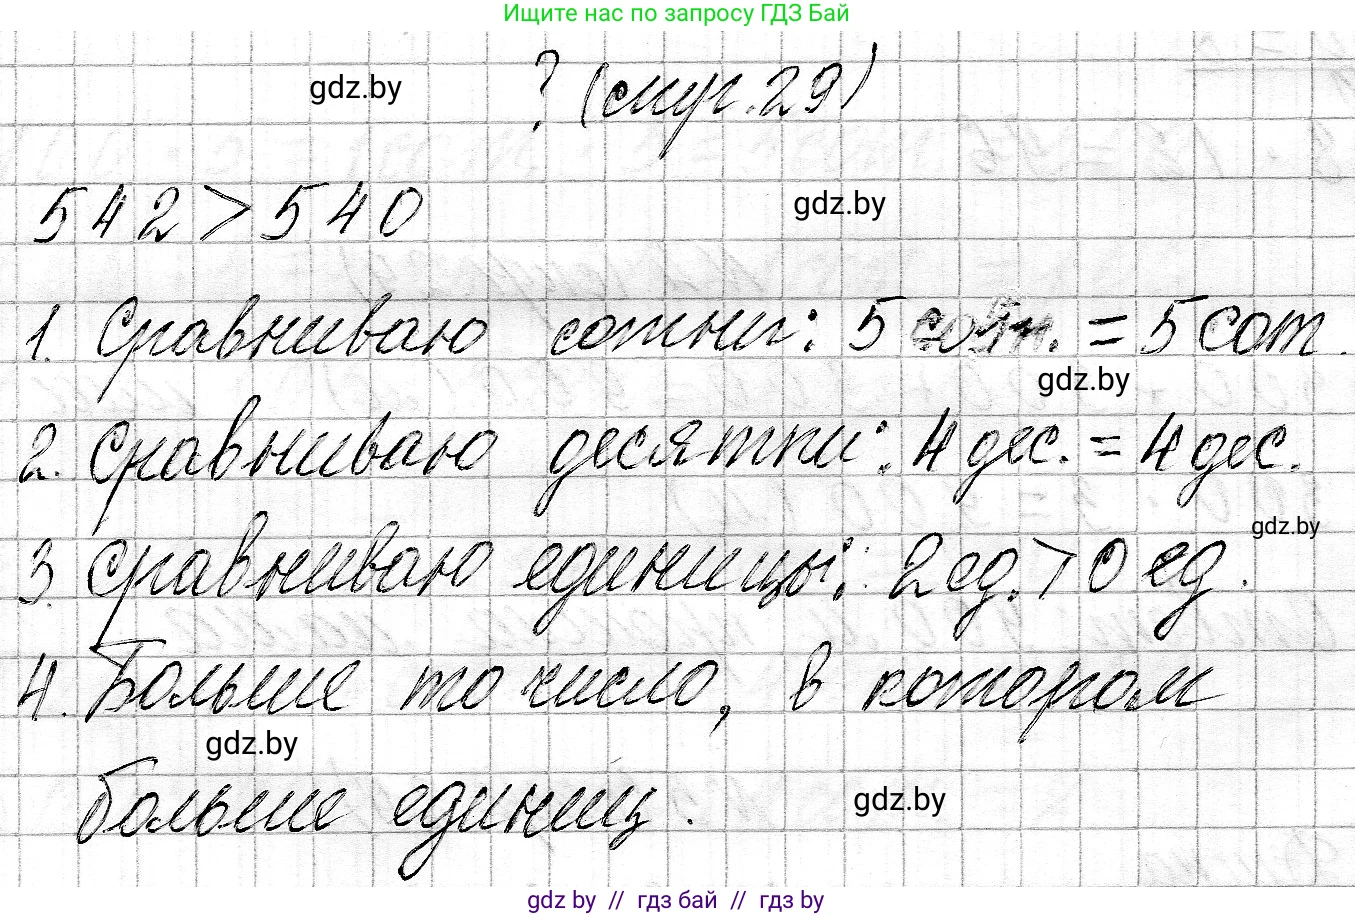 Ищите нас по запросу ГДЗ Бай
gdz.by
? (стр. 29)
542 > 540
gdz.by
1. Сравниваю сотни: 5 сотн. = 5 сот.
gdz.by
2. Сравниваю десятки: 4 дес. = 4 дес.
gdz.by
3. Сравниваю единицы: 2 ед. > 0 ед.
4. Больше то число, в котором
gdz.by
больше единиц.
gdz.by
gdz by // гдз бай // гдз by